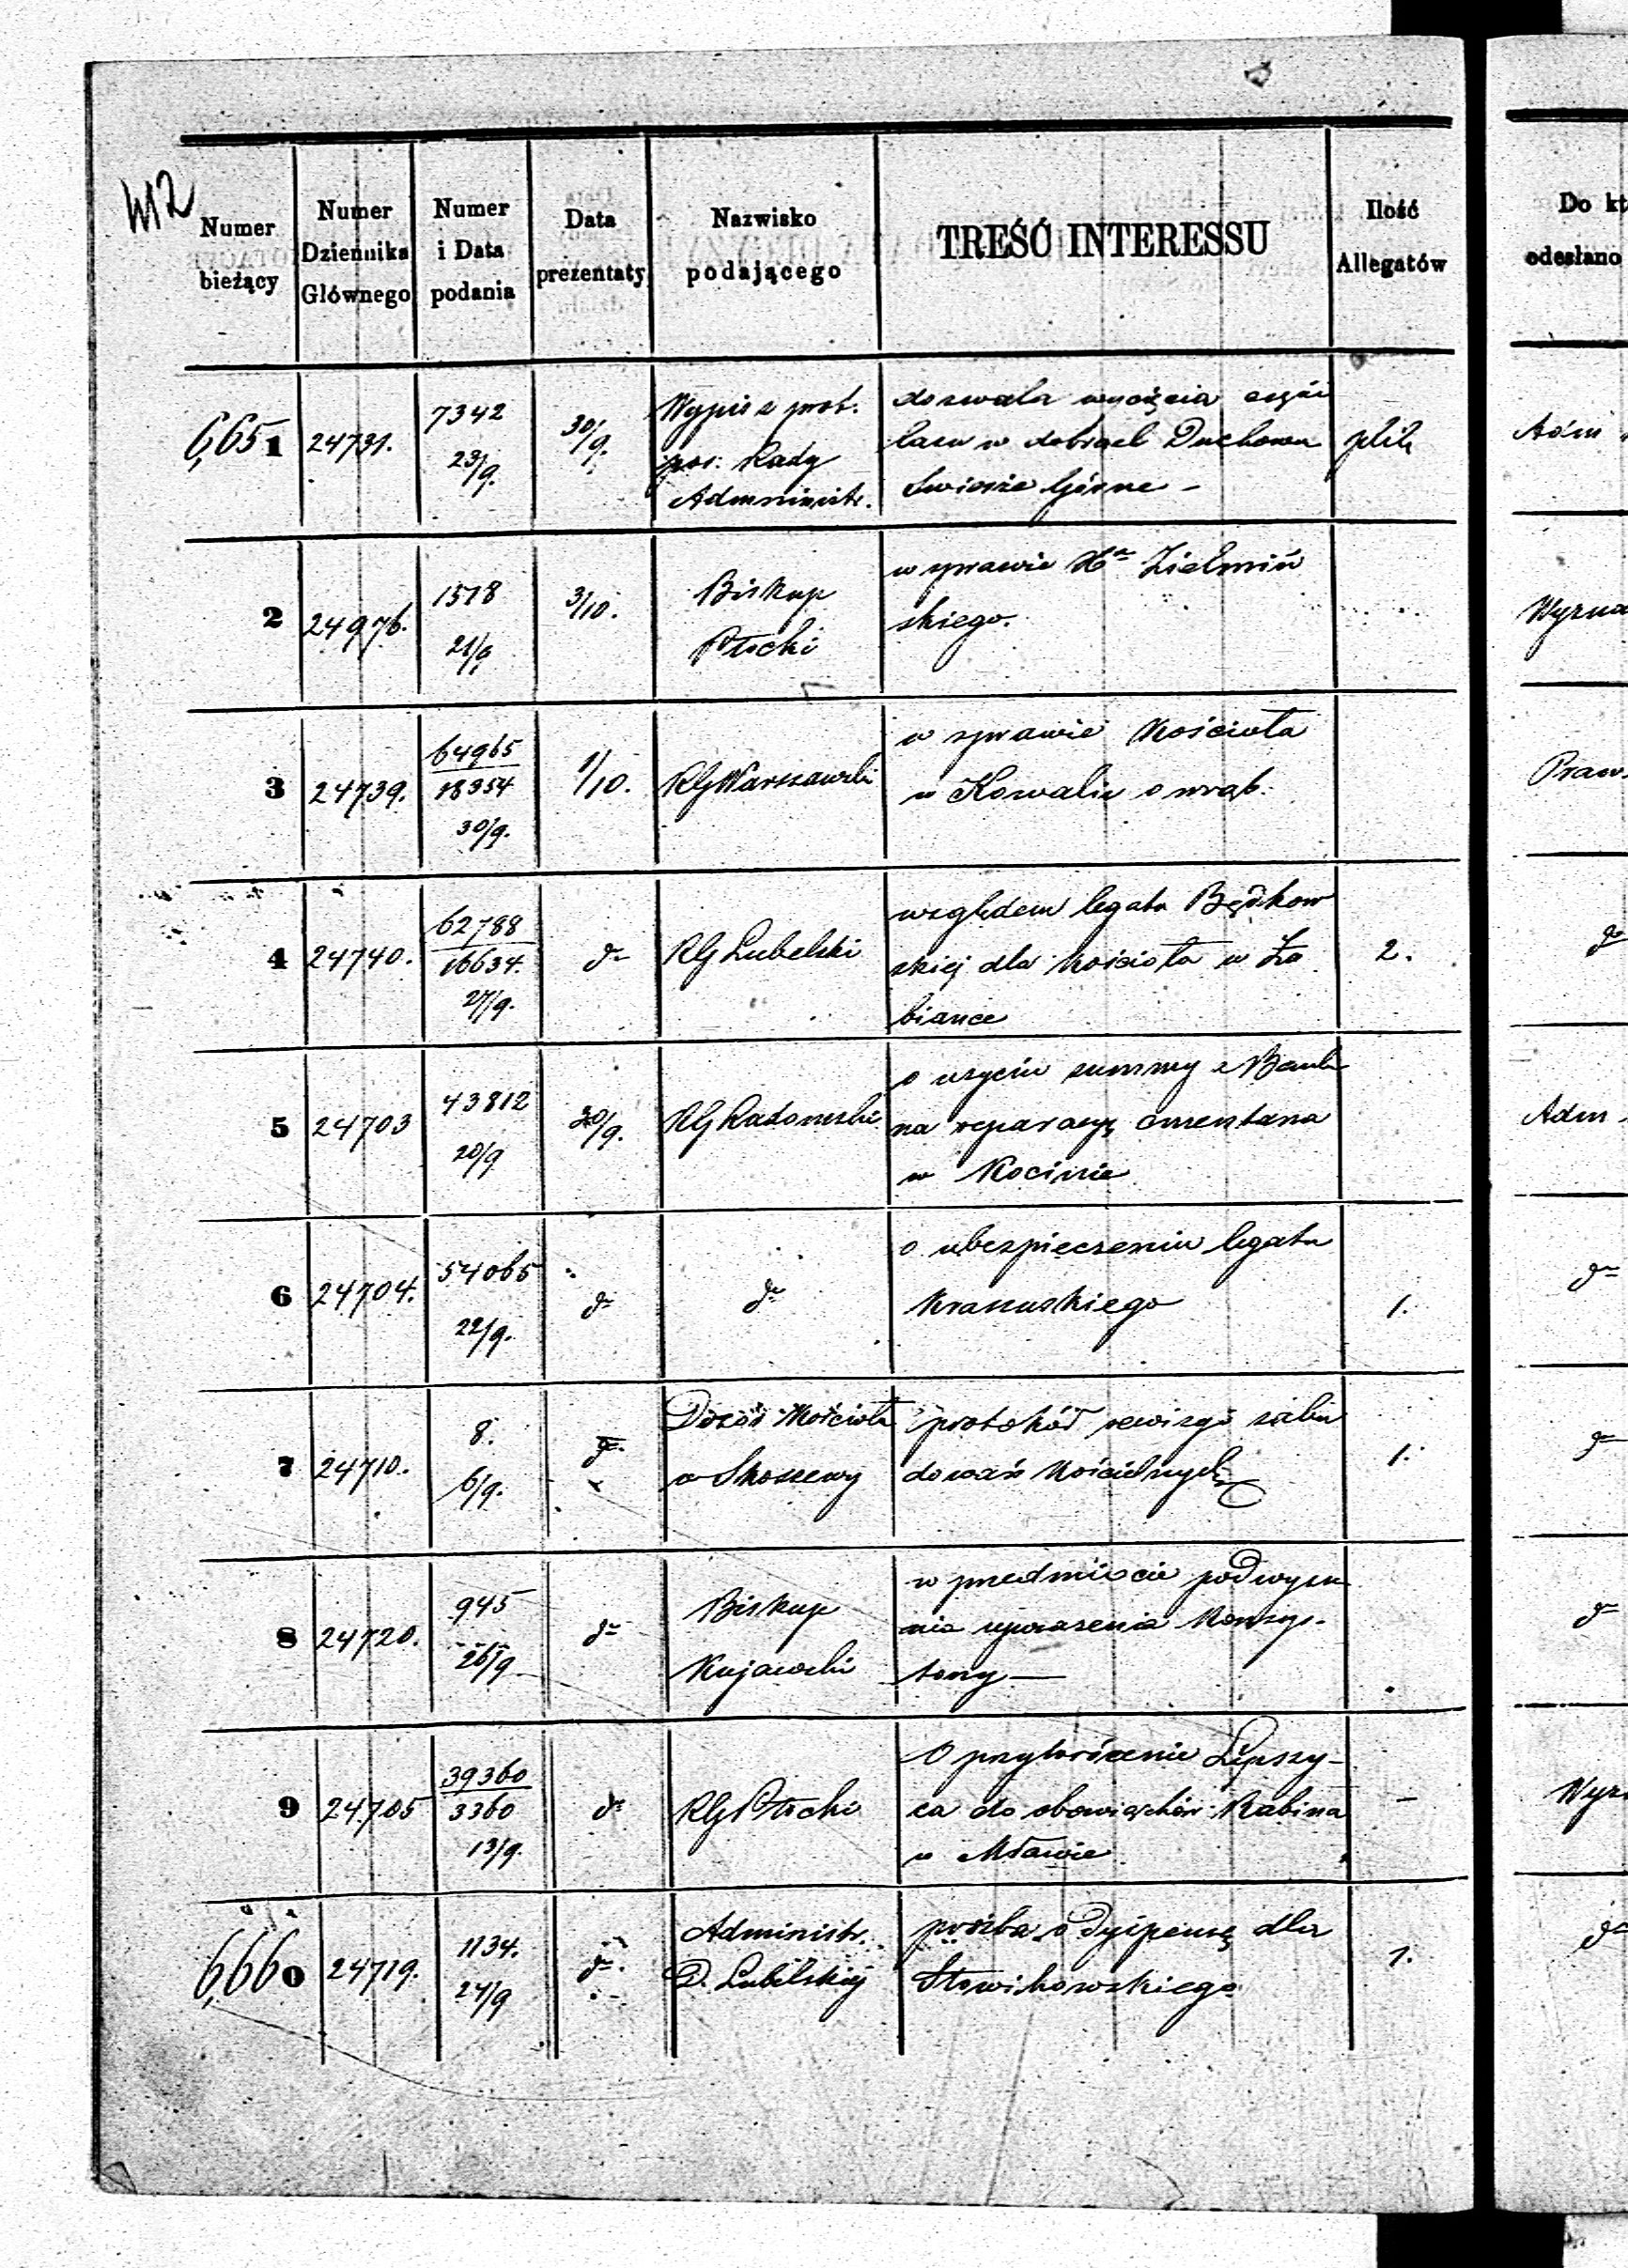 Numer
bieżący
Numer
Dziennika
Głównego
Numer
i Data
podania
Data
prezentaty
Nazwisko
podającego
TREŚĆ INTERESSU
Ilość
Allegatów
Do kt
odesłano
6,651
24731.
7342
23/9.
30/9.
Wypis z prot.
pos: Rady
Administr.
dozwala wycięcia części
lasu w dobrach Duchown
Swierże Górne –
plik
Adm
2
24976.
1518
21/9
3/10.
Biskup
Płocki
w sprawie Xa Zielmiń
skiego.
Wyzna
3
24739.
64965
18354
30/9.
1/10.
RG Warszawski
w sprawie Kościoła
w Kowalu o wrąb.
Praw.
4
24740.
62788
16634.
27/9.
do
RG Lubelski
względem legatu Będkow
skiej dla Kościoła w Ła
biance
2.
do
5
24703
43812
20/9
30/9.
RG Radomski
o użyciu summy z Banku
na reparacyę cmentarza
w Kocinie
Adm.
6
24704.
54065
22/9.
do
do
o ubezpieczeniu legatu
Krasuskiego
1.
do
7
24710.
8.
6/9.
do
Dozór Kościoła
w Skoszewy
protokół rewizyi zabu
dowań Kościelnych
1.
do
8
24720.
945
26/9
do
Biskup
Kujawski
w przedmiocie podwyższe
nia uposażenia Konsys-
torzy —
do
9
24705
39360
3360
13/9.
do
RG Płocki
O przywrócenie Lipszy-
ca do obowiązków Rabina
w Mławie
–
Wyzn
6,660
24719.
1134.
24/9
do.
Administr.
D. Lubelskiej
prośba o dyspensę dla
Słowikowskiego
1.
do